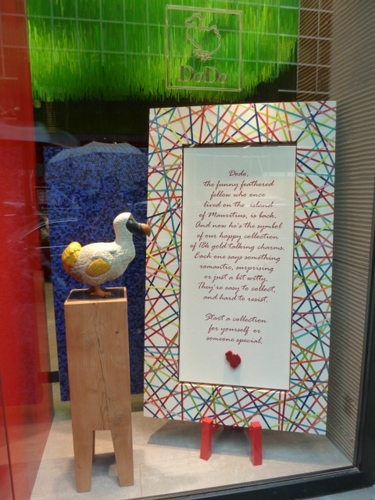 DoDo
Dodo,
the funny feathered
fellow who once
lived on the island
of Mauritius, is back.
And now he's the symbol
of our happy collection
of 18k gold talking charms.
Each one says something
romantic, surprising
or just a bit witty.
They're easy to collect,
and hard to resist.
Start a collection
for yourself or
someone special.